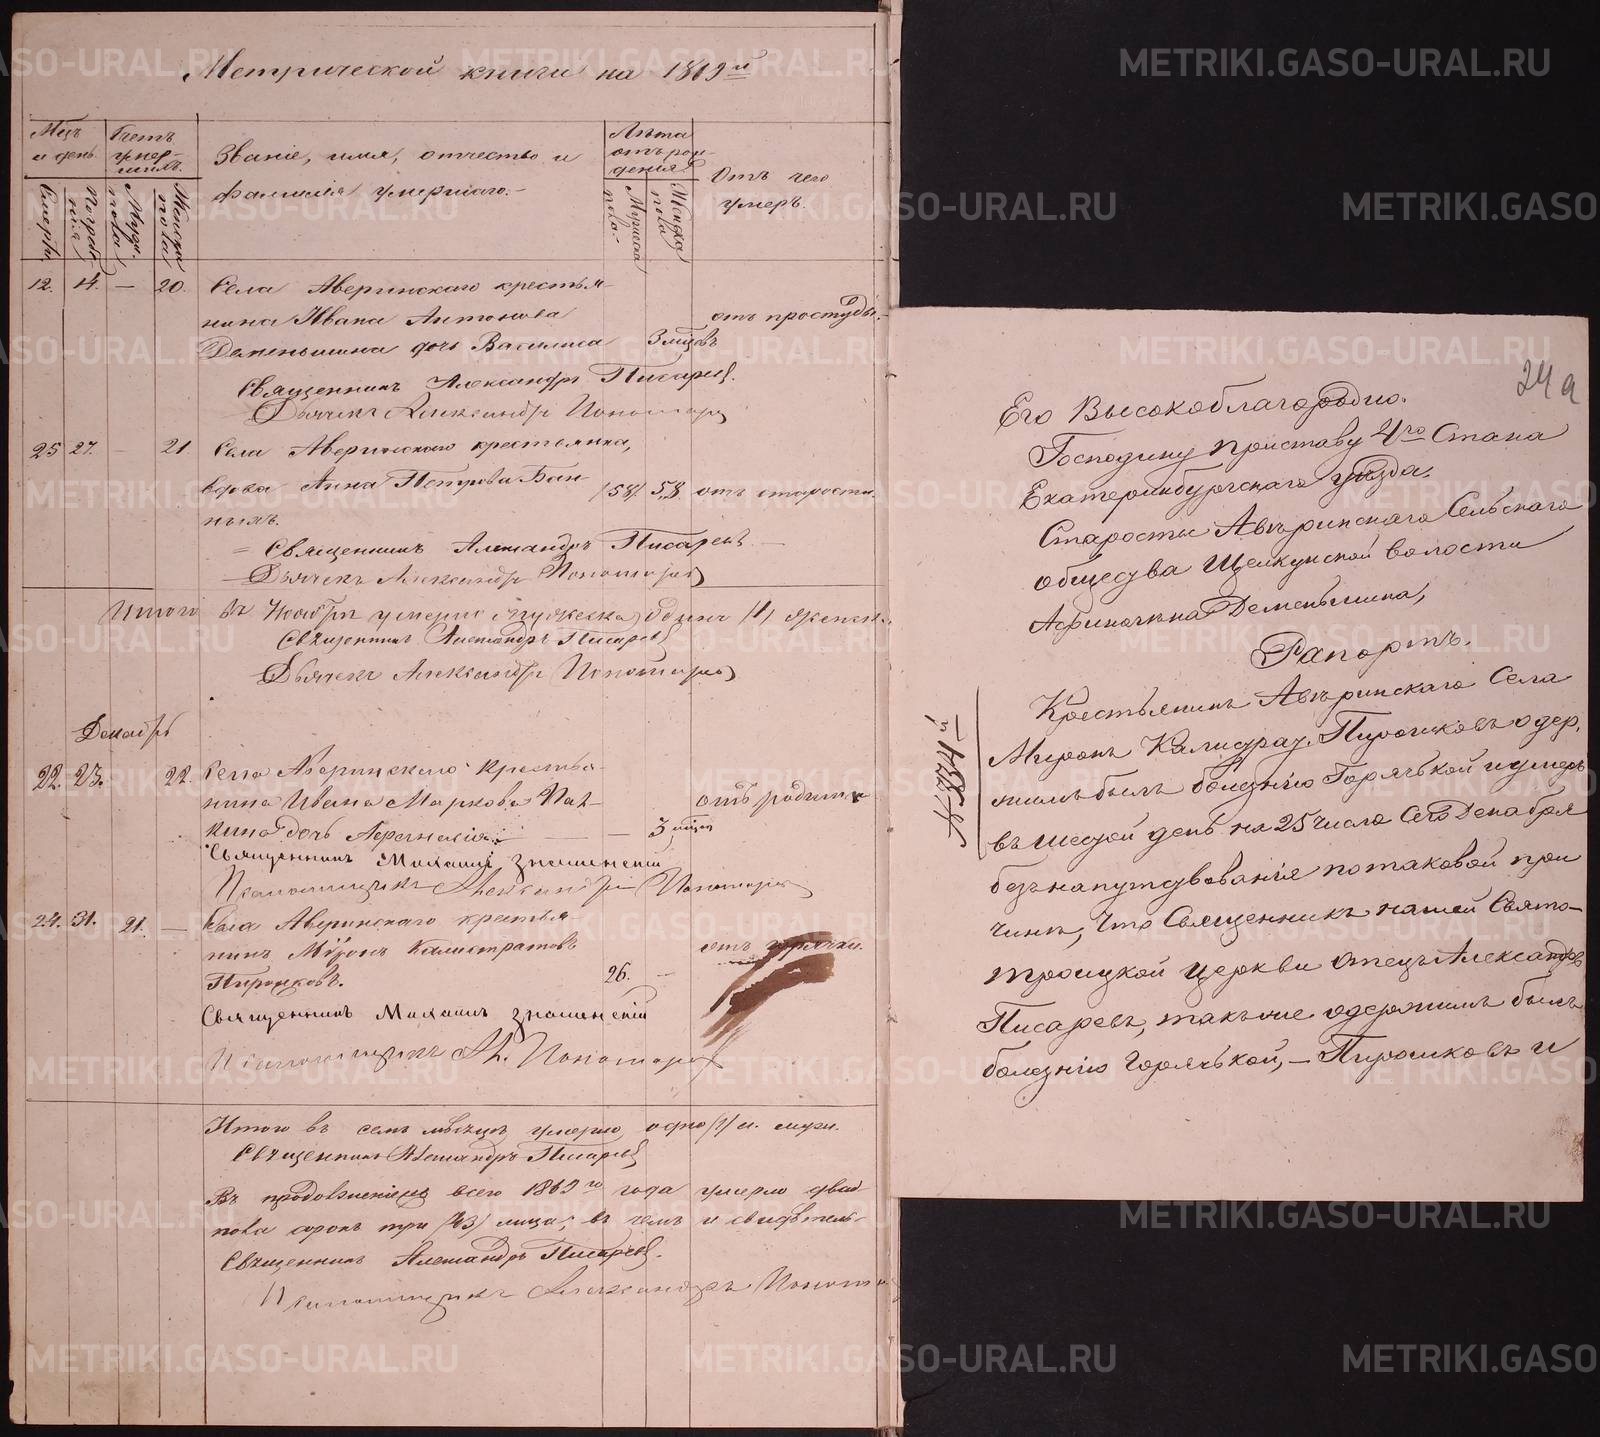 Метрической книги на 1869й
Мцъ и день.
Счетъ умер-
шихъ.
Званіе, имя, отчество и
фамилія умершаго.
Лѣта
отъ рож-
денія
Отъ чего
умеръ.
Смерти
Погребе-
нія
Муж.
пола
Женска
пола
Мужеска
пола.
Женска
пола
12. 14. — 20. Села Аверинскаго крестья-
нина Ивана Антонова отъ простуды.
Деменьшина дочь Василиса 3 мцовъ
Священникъ Александръ Писаревъ.
Дьячекъ Александръ Пономаревъ
25 27. — 21. Села Аверинскаго крестьянка,
вдова Анна Петрова Бан- /58/ 58 отъ старости.
ныхъ.
Священникъ Александръ Писаревъ
Дьячекъ Александръ Пономаревъ
Итого въ Ноябрѣ умерло мужеска одинъ /1/ женск.
Священникъ Александръ Писаревъ
Дьячекъ Александръ Пономаревъ
Декабрь
22. 23. 22. Села Аверинскаго Крестья-
нина Ивана Маркова Пат- отъ родим
кина дочь 3 мцовъ
Священникъ Михаилъ Знаменскій
Псаломщикъ Александръ Пономаревъ
24. 31. 21. — Села Аверинскаго крестья-
нинъ Миронъ Калистратовъ отъ горячки.
Пирожковъ. 26. —
Священникъ Михаилъ Знаменскій
Псаломщикъ Ал. Пономаревъ
Итого въ семъ мѣсяцѣ умерло одно /1/ м. муж.
Священникъ Александръ Писаревъ
Въ продолженіе всего 1869го года умерло двай-
пола сорок три /43/ лица; въ чемъ и свидѣтель-
Священникъ Александръ Писаревъ.
Псаломщикъ Александръ Понома
24 а
Его Высокоблагородію.
Господину Приставу 4го Стана
Екатеринбургскаго уѣзда,
Старосты Авѣринскаго Сельскаго
общества Щелкунской волости
Деменьшина,
Рапортъ.
Крестьянинъ Авѣринскаго Села
Миронъ Калистрат. Пирожковъ одер,
жимъ былъ болезнію Горячькой и умеръ
въ шестой день на 25 число Сего Декабря
безъ напутствованія потаковой при
чинѣ, Что Священникъ нашей Свято-
троицкой церкви Отецъ Александръ
Писаревъ, такъже одержимъ былъ
болезнію горячькой, — Пирожковъ и
METRIKI.GASO-URAL.RU